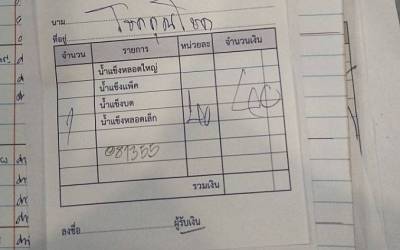 นาม
ที่อยู่
จำนวน รายการ หน่วยละ จำนวนเงิน
น้ำแข็งหลอดใหญ่
น้ำแข็งแพ็ค
น้ำแข็งบด
1 น้ำแข็งหลอดเล็ก 40
รวมเงิน
ลงชื่อ ผู้รับเงิน